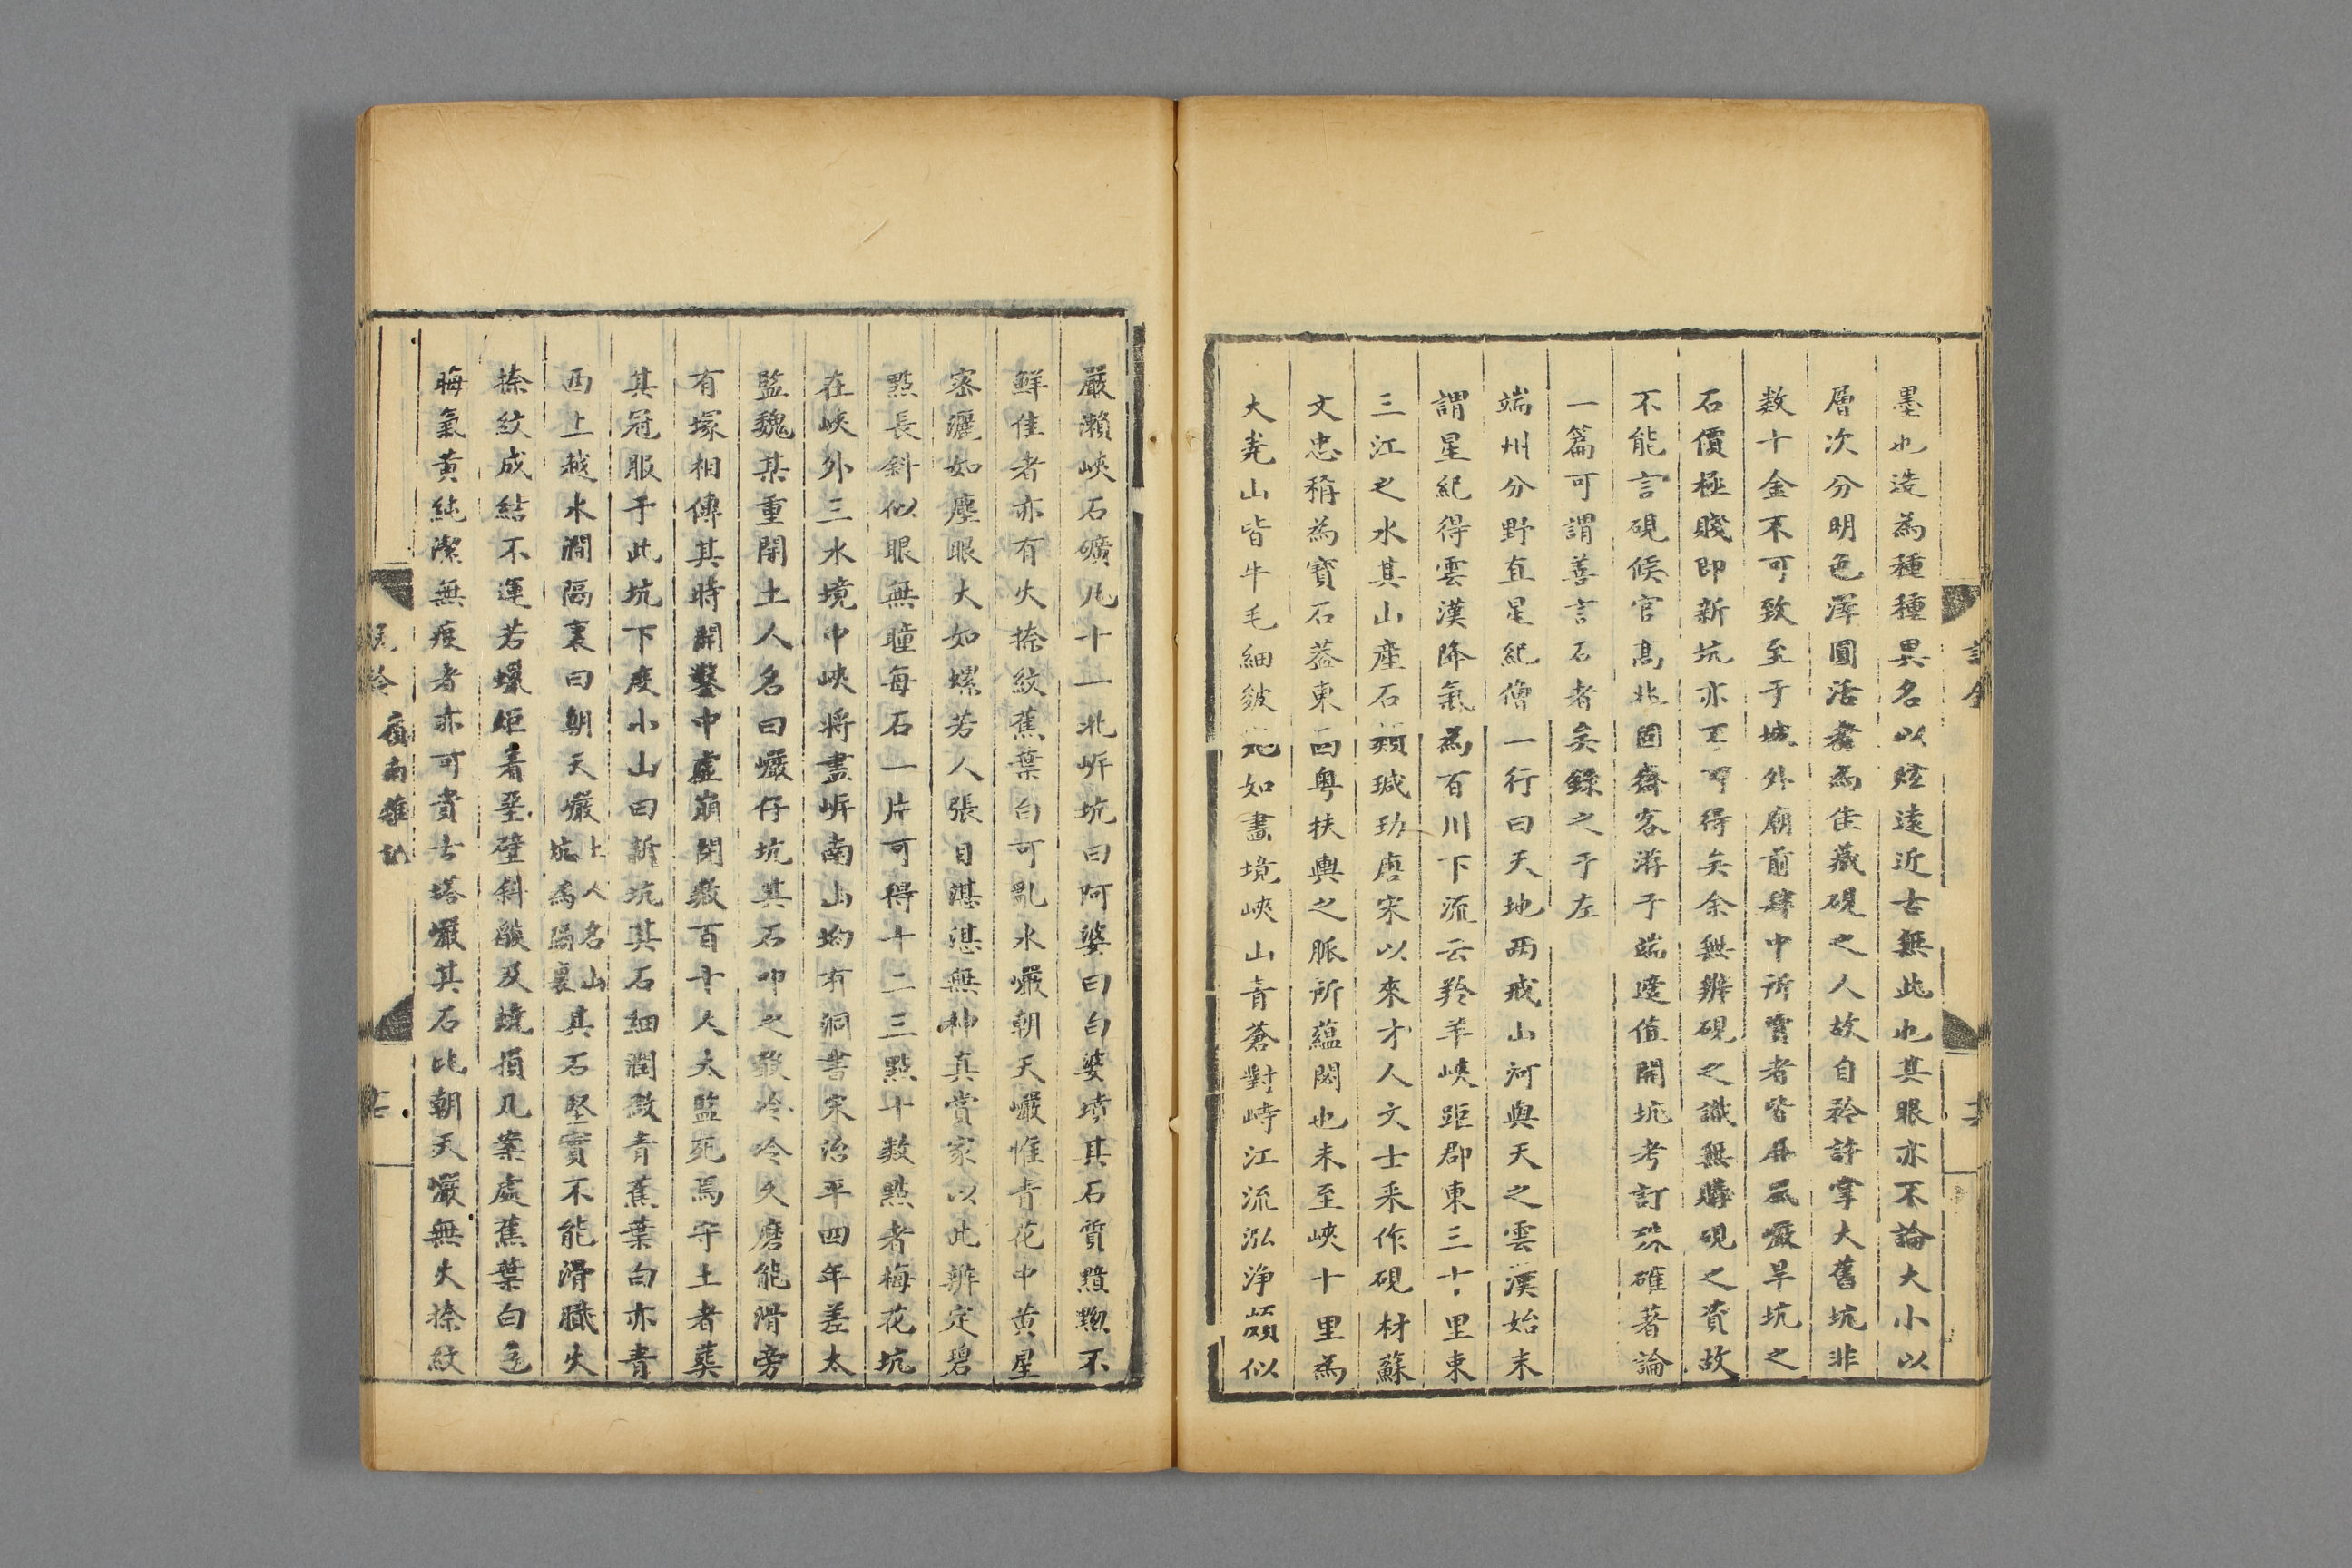 墨也造為種種異名以炫遠近古無此也其眼亦不論大小以
層次分明色澤圓活者為佳藏硯之人故自矜詐掌大舊坑非
数十金不可致至于城外廟前肆中所賣者皆屏風巖旱坑之
石價極賤即新坑亦不可得矣余無辨硯之識無購硯之資故
不能言硯候官高兆固齋客游于端遂值開坑考訂殊確著論
一篇可謂善言石者矣錄之于左
端州分野直星紀僧一行曰天地兩戒山河與天之雲漢始末
謂星紀得雲漢降氣為百川下流云羚羊峽距郡東三十里東
三江之水其山產石類珷玞唐宋以來才人文士采作硯材蘇
文忠稱為寶石葢東西粤扶輿之脈所蘊閟也未至峽十里為
大尭山皆牛毛細皴如畫境峽山青蒼對峙江流泓浄頗似
嚴瀨峽石礦凡十一北岍坑曰阿婆曰白婆墳其石質黯黝不
鮮佳者亦有火捺紋蕉葉白可亂水巖朝天巖惟青花中黄星
宻灑如塵眼大如螺若人張目湛湛無神真賞家以此辨定碧
點長斜似眼無瞳每石一片可得十二三點十数點者梅花坑
在峽外三水境中峽將盡岍南山坳有洞書宋治平四年差太
監魏某重開土人名曰巖仔坑其石叩之聲泠泠久磨能滑旁
有塚相傳其時開鑿中虚崩閉数百十人太監死焉守土者葬
其冠服于此坑下度小山曰新坑其石細潤微青蕉葉白亦青
西上越水澗隔裏曰朝天巖上人名山坑為隔裏其石堅實不能滑膩火
捺紋成結不運若蠟炬着堊壁斜酸及燒損几案處蕉葉白色
晦氣黄純潔無痕者亦可貴古塔巖其石比朝天巖無火捺紋
嶺南雜記